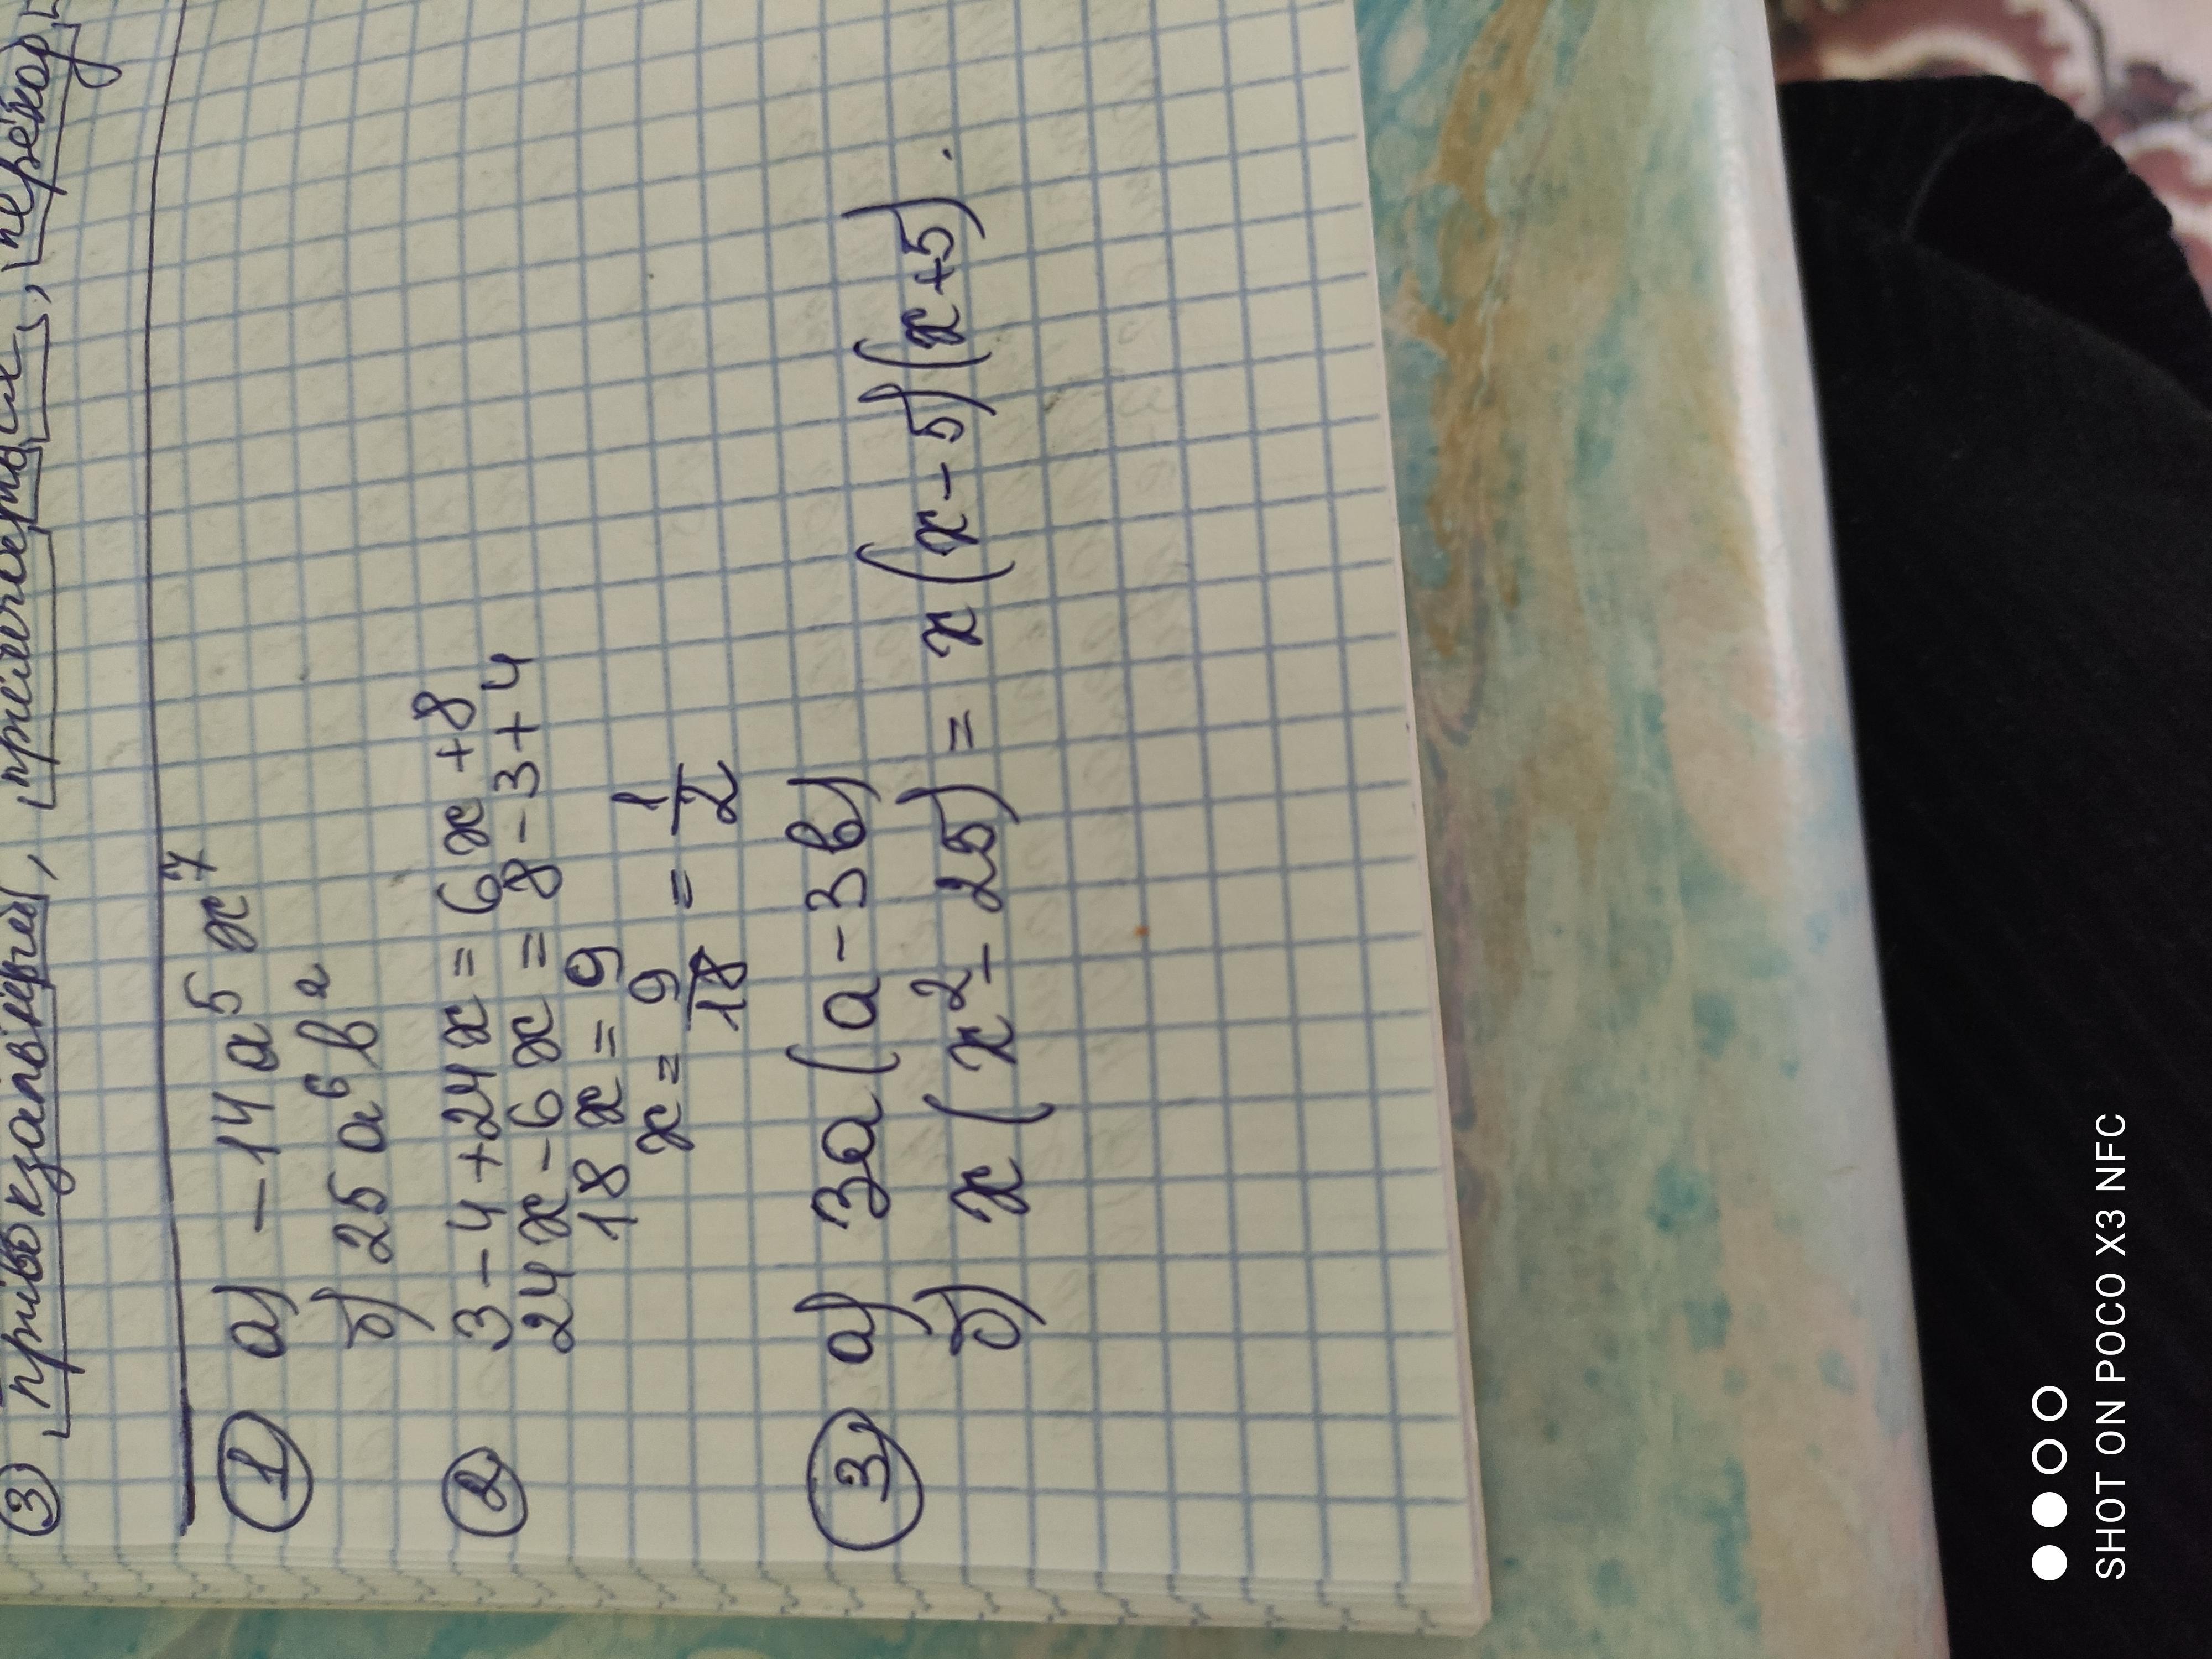 ③ привокзальный, пришкольный, переход,
① а) −14a⁵x⁷
б) 25a⁶b²
② 3−4+24x=6x+8
24x−6x=8−3+4
18x=9
x=9/18=1/2
③ а) 3a(a−3b)
б) x(x²−25)=x(x−5)(x+5).
SHOT ON POCO X3 NFC